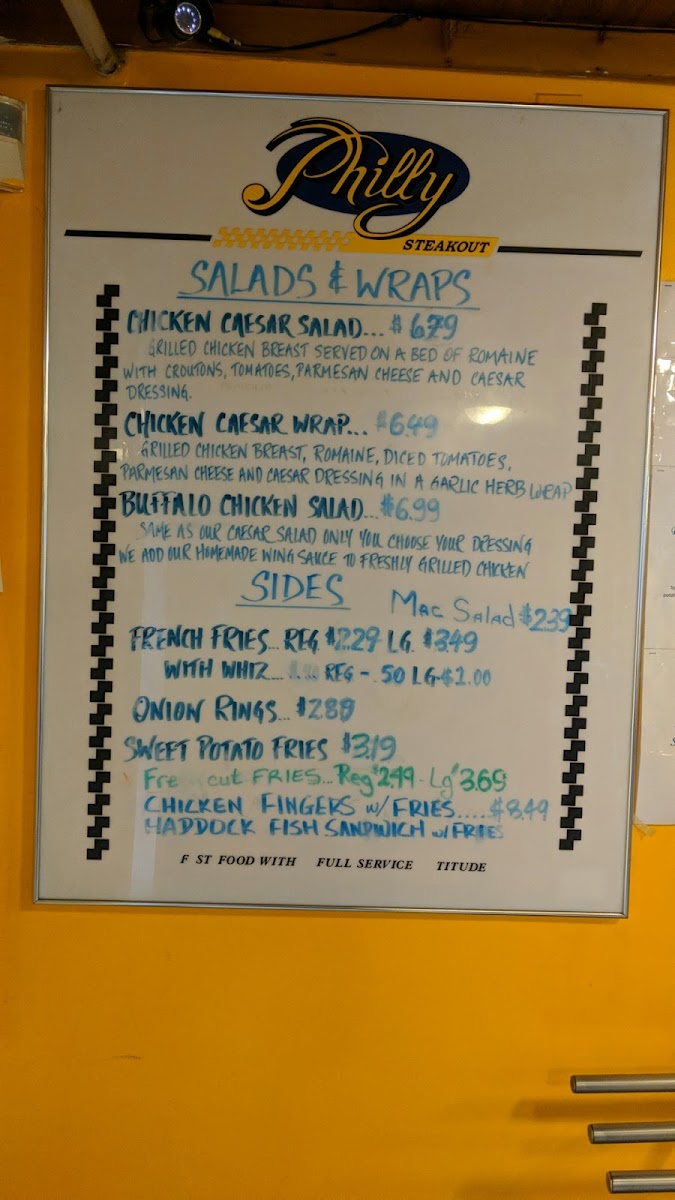 Philly
STEAKOUT
SALADS & WRAPS
CHICKEN CAESAR SALAD... $6.79
GRILLED CHICKEN BREAST SERVED ON A BED OF ROMAINE
WITH CROUTONS, TOMATOES, PARMESAN CHEESE AND CAESAR
DRESSING.
CHICKEN CAESAR WRAP... $6.49
GRILLED CHICKEN BREAST, ROMAINE, DICED TOMATOES,
PARMESAN CHEESE AND CAESAR DRESSING IN A GARLIC HERB WRAP
BUFFALO CHICKEN SALAD... $6.99
SAME AS OUR CAESAR SALAD ONLY YOU CHOOSE YOUR DRESSING
WE ADD OUR HOMEMADE WING SAUCE TO FRESHLY GRILLED CHICKEN
SIDES
Mac Salad $2.39
FRENCH FRIES... REG. $2.29 LG. $3.49
WITH WHIZ... REG - .50 LG-$1.00
ONION RINGS... $2.89
SWEET POTATO FRIES $3.19
Fre cut FRIES... Reg $2.49 - Lg $3.69
CHICKEN FINGERS w/ FRIES..... $8.49
HADDOCK FISH SANDWICH w/ FRIES
F ST FOOD WITH FULL SERVICE TITUDE